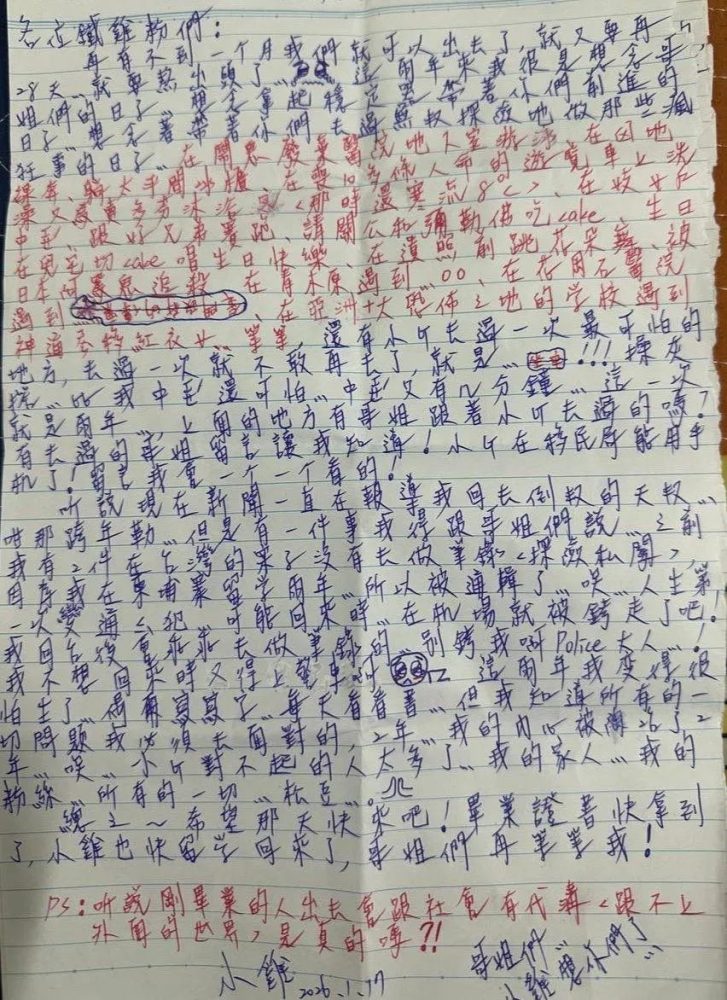 各位鐵雞粉們：
再有不到一個月我們就可以出去了，就又要再
28天...就要熬出頭了...這兩年來我很是想念哥
姐們的日子...想念拿起穩定器帶著你們前進的
日子...想念著帶著你們去過無數探險地做那些瘋
狂事的日子...在開眾廢棄醫院地下室游泳、在凶地
裸奔、躺大平間冰櫃、在喪10多條人命的遊覽車上洗
澡又廢車旁夯冰浴<那時還寒流8°C>、在收
中毛、跟好兄弟賽跑、請關公和彌勒佛吃cake、生日
在兇宅切cake唱生日快樂、在遺照前跳花朵舞、被
日本阿 追殺、在青木原遇到...00、在花岡石醫院
遇到 、在亞洲十大恐怖之地的学校遇到
神道 紅衣女...等等，還有小ㄐ去過一次最可怕的
地方，去過一次就不敢再去了，就是... !!!探灰
搖...比我中毛還可怕...中毛又有几分鐘...這一次
就是兩年...，上面的地方有哥姐跟着小ㄐ去過的嗎?
有去過的哥姐留言讓我知道！小ㄐ在移民局能用手
机了！留言我會一个一个看的！
听說現在新聞一直在報導我回去倒数的天数...
咁那跨年勒...但是有一件事我得跟哥姐們說...之前
我有2件在台灣的案子沒有去做筆錄<探險私闖>
因為我在柬埔寨留学兩年...所以被通緝了...唉...人生第
一次變通ㄐ犯...可能回來時...在机場就被銬走了吧!
我回台後會乖乖去做筆錄的...別銬我啊Police大人...!
我不想回來時又得上警車啊 這兩年我变得很
怕生了...偶爾寫寫字...每天看看書...但我知道所有的一
切問題我必須去面對的，2年...我的內心被 2
年...唉...小ㄐ對不起的人太多了...我的家人...我的
粉絲...所有的一切...松豆...
總之～希望那天快來吧！畢業證書快拿到
了，小雞也快留学回來了，哥姐們再等等我！
PS：听說剛畢業的人出去會跟社會有代溝<跟不上
外面的世界>是真的嗎?!
哥姐們...
小雞想你們了...
小雞 2026.1.17